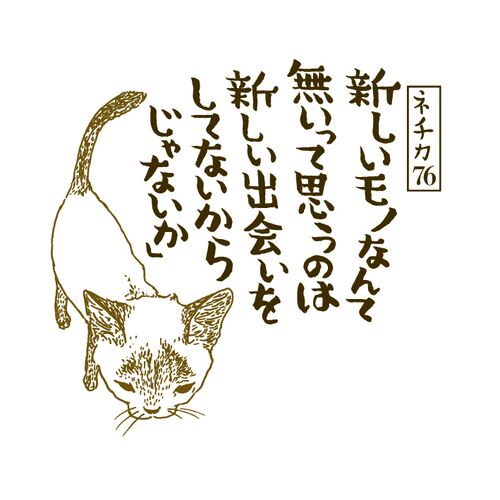 ネチカ76
新しいモノなんて
無いって思うのは
新しい出会いを
してないから
じゃないか」